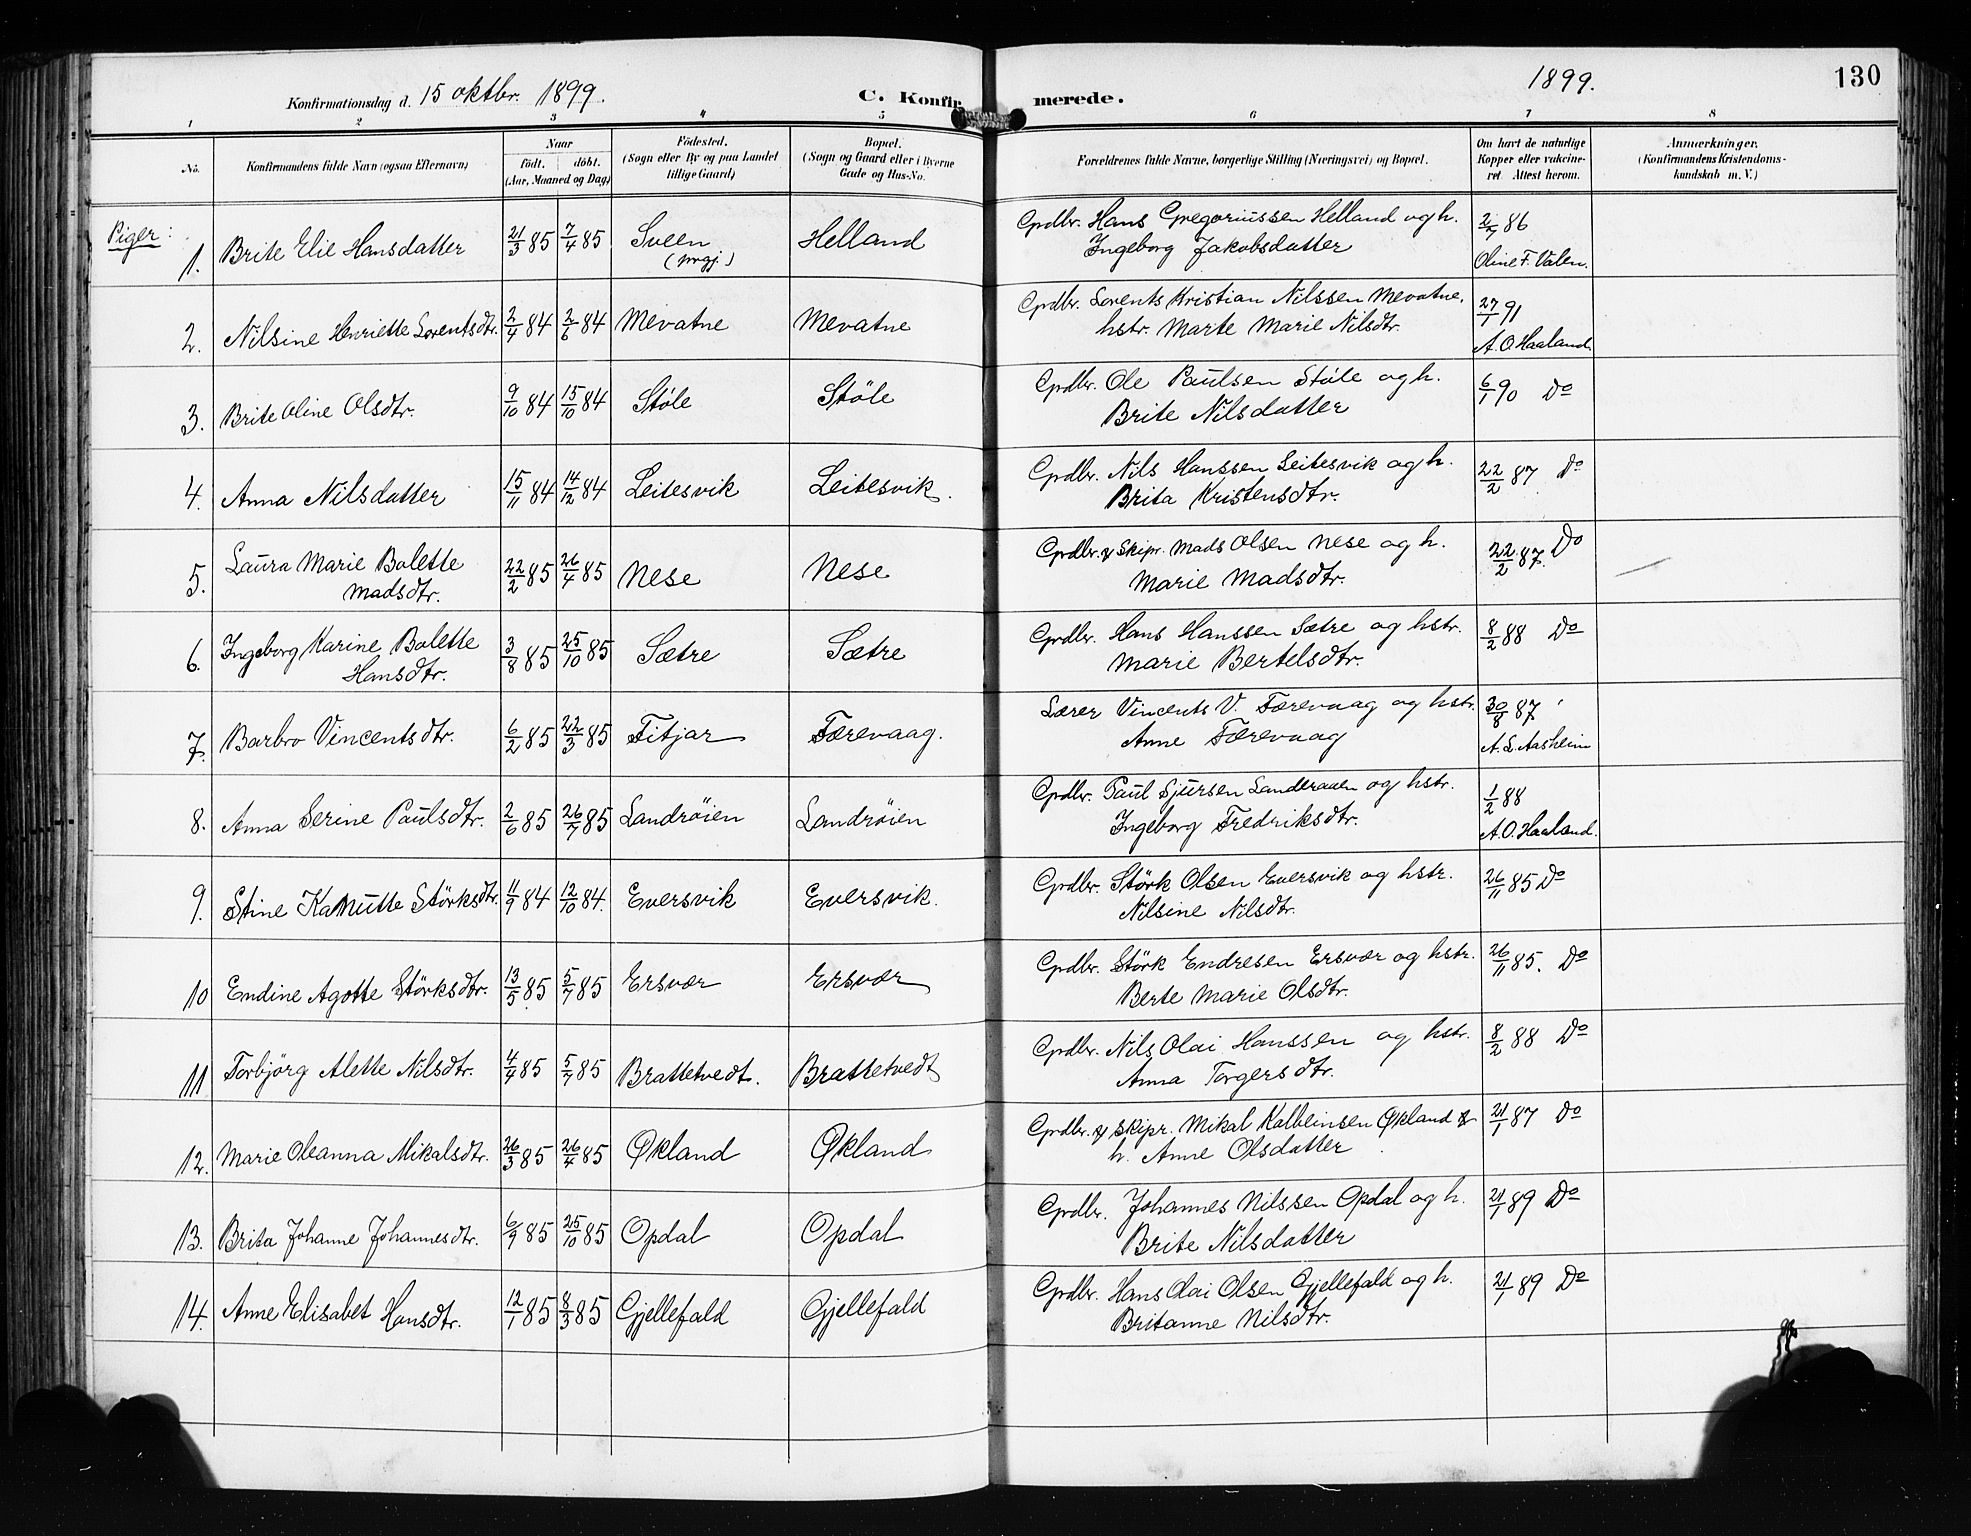 Konfirmationsdag d. 15 oktbr. 1899. C. Konfirmerede. 1899. 130
1 2 3 4 5 6 7 8
No. Konfirmandens fulde Navn (ogsaa Efternavn) Naar født. døbt. (Aar, Maaned og Dag) Fødested. (Sogn eller By og paa Landet tillige Gaard) Bopæl. (Sogn og Gaard eller i Byerne Gade og Hus-No. Forældrenes fulde Navne, borgerlige Stilling (Næringsvei) og Bopæl. Om havt de naturlige Kopper eller vakcineret Attest herom. Anmerkninger. (Konfirmandens Kristendomskundskab m. V.)
Piger:
1. Brite Elie Hansdatter 21/3 85 7/4 85 Sveen Helland Grdbr. Hans Gregoriussen Helland og h. 2/7 86
Ingeborg Jakobsdatter Oline F. Valen.
2. Nilsine Henriette Lorentsdtr. 2/4 84 2/6 84 Mevatne Mevatne Grdbr. Lorents Kristian Nilssen Mevatne. 27/1 91
hstr. Marte Marie Nilsdtr. A. O. Haaland
3. Brite Oline Olsdtr. 9/10 84 15/10 84 Støle Støle Grdbr. Ole Paulsen Støle og h. 6/1 90 Do
Brite Nilsdatter
4. Anna Nilsdatter 15/11 84 14/12 84 Leitesvik Leitesvik. Grdbr. Nils Hanssen Leitesvik og h. 22/2 87 Do
Brita Kristensdtr.
5. Laura Marie Bolette 22/2 85 26/4 85 Nese Nese Grdbr. & Skipr. Mads Olsen Nese og h. 22/2 87. Do
Madsdtr. Marie Madsdtr.
6. Ingeborg Karine Bolette 3/8 85 25/10 85 Sætre Sætre Grdbr. Hans Hanssen Sætre og hstr. 8/2 88 Do
Hansdtr. Marie Bertelsdtr.
7. Barbro Vincentsdtr. 6/2 85 22/3 85 Fitjar Færevaag. Lærer Vincents V. Færevaag og hstr. 30/8 87
Anne Færevaag A. L. Aasheim
8. Anna Serine Paulsdtr. 2/6 85 26/7 85 Landrøien Landrøien Grdbr. Paul Sjursen Landeraaen og hstr. 1/2 88
Ingeborg Fredriksdtr. A. O. Haaland.
9. Stine Störksdtr. 11/9 84 12/10 84. Eversvik Eversvik. Grdbr. Störk Olsen Eversvik og hstr. 26/11 85 Do
Nilsine Nilsdtr.
10 Endine Agotte Störksdtr. 13/5 85 5/7 85 Ersvær Ersvær Grdbr. Störk Endresen Ersvær og hstr. 26/11 85. Do
Berte Marie Olsdtr.
11 Torbjörg Alette Nilsdtr. 4/4 85 5/7 85 Brattetvedt. Brattetvedt Grdbr. Nils Olai Hanssen og hstr. 8/2 88 Do
Anna Torgersdtr.
12. Marie Oleanna Mikalsdtr. 26/3 85 26/4 85 Økland Økland Grdbr. & Skipr. Mikal Kalbeinsen Økland & 21/1 87 Do
h. Anne Olsdatter
13. Brita Johanne Johannesdtr. 6/9 85 25/10 85 Opdal Opdal Grdbr. Johannes Nilssen Opdal og h. 21/1 89 Do
Brite Nilsdatter
14. Anne Elisabet Hansdtr. 12/1 85 8/3 85 Gjellefald Gjellefald Grdbr. Hans Olai Olsen Gjellefald og h. 21/1 89 Do
Britanne Nilsdtr.